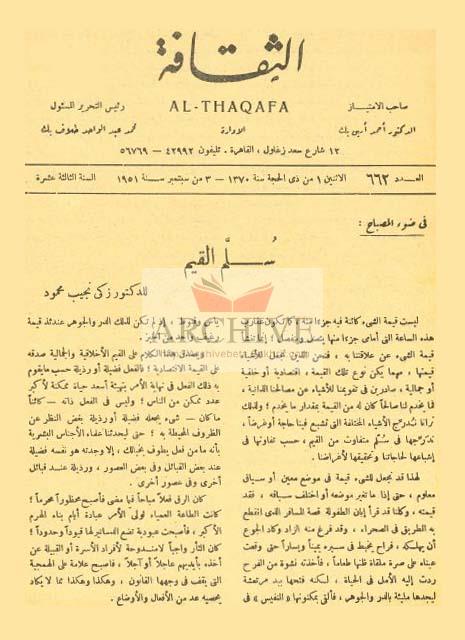 الثقافة
AL-THAQAFA
صاحب الامتياز
الدكتور أحمد أمين بك
رئيس التحرير المسئول
محمد عبد الواحد خلاف بك
الادارة
١٢ شارع سعد زغلول ، القاهرة . تليفون ٤٢٩٩٢ — ٥٦٧٦٩
العدد ٦٦٢
الاثنين ١ من ذى الحجة سنة ١٣٧٠ — ٣ من سبتمبر سنة ١٩٥١
السنة الثالثة عشرة
فى ضوء المصباح :
سُلَّم القيم
للدكتور زكى نجيب محمود
ليست قيمة الشىء كائنة فيه جزءا منه كما تكون عقارب
هذه الساعة التى أمامى جزءا منها
قيمة الشىء عن علاقتنا به ، فنحن الذين نجعل للأشياء
قيمتها ، مهما يكن نوع تلك القيمة ، اقتصادية أو خلقية
أو جمالية ، صادرين فى تقويمنا للأشياء عن مصالحنا الذاتية ،
فما يخدم لنا صالحاً كان له من القيمة بمقدار ما يخدم ؛ ولذلك
ترانا ندرج الأشياء المختلفة التى تشبع فينا حاجة أو غرضاً ،
ندرجها فى سُلّم متفاوت من القيم ، حسب تفاوتها فى
إشباعها لحاجاتنا وتحقيقها لأغراضنا .
لهذا قد يجعل للشىء قيمة فى موضع معين أو سياق
معلوم ، حتى إذا ما تغير موضعه أو اختلف سياقه ، فقد
قيمته ؛ وكلنا قد قرأ إبان الطفولة قصة المسافر الذى انقطع
به الطريق فى الصحراء ، وقد فرغ منه الزاد وكاد الجوع
أن يهلكه ، فراح يخبط فى سيره يميناً ويساراً حتى وقعت
عيناه على صرة ملقاة ظنها طعاماً ، فأخذته نشوة من الفرح
ردت إليه الأمل فى الحياة ، لكنه فتحها بيد مرتعشة
ليجدها مليئة بالدر والجوهر ، فألقى بمكنونها « النفيس » فى
يأس وقنوط ، إذ لم تكن لذلك الدر والجوهر عندئذ قيمة
رغيف واحد من الخبز .
ويصدق هذا الكلام على القيم الأخلاقية والجمالية صدقه
على القيمة الاقتصادية ؛ فالفعل فضيلة أو رذيلة حسب ما يقوم
به ذلك الفعل فى نهاية الأمر بتهيئة أسعد حياة ممكنة لأكبر
عدد ممكن من الناس ؛ وليس فى الفعل ذاته — كائناً
ما كان — شىء يجعله فضيلة أو رذيلة بغض النظر عن
الظروف المحيطة به ؛ حتى ليحدثنا علماء الأجناس البشرية
بأنه ما من فعل يطوف بخيالك ، إلا وجدته هو نفسه فضيلة
عند بعض القبائل وفى بعض العصور ، ورذيلة عند قبائل
أخرى وفى عصور أخرى .
كان الرق فعلاً مباحاً فيما مضى فأصبح محظوراً محرماً ؛
كانت الطاعة العمياء لولى الأمر عبادة أيام بناء الهرم
الأكبر ، فأصبحت عبودية تضع الدساتير لها قيوداً وحدوداً ؛
كان الثأر واجباً لا مندوحة لأفراد الأسرة أو القبيلة عن
أخذه بأيديهم عاجلاً أو آجلاً ، فأصبح علامة على الهمجية
التى يقف فى وجهها القانون ، وهكذا وهكذا مما لا يكاد
يحصيه عد من الأفعال والأوضاع .
ARCHIVE